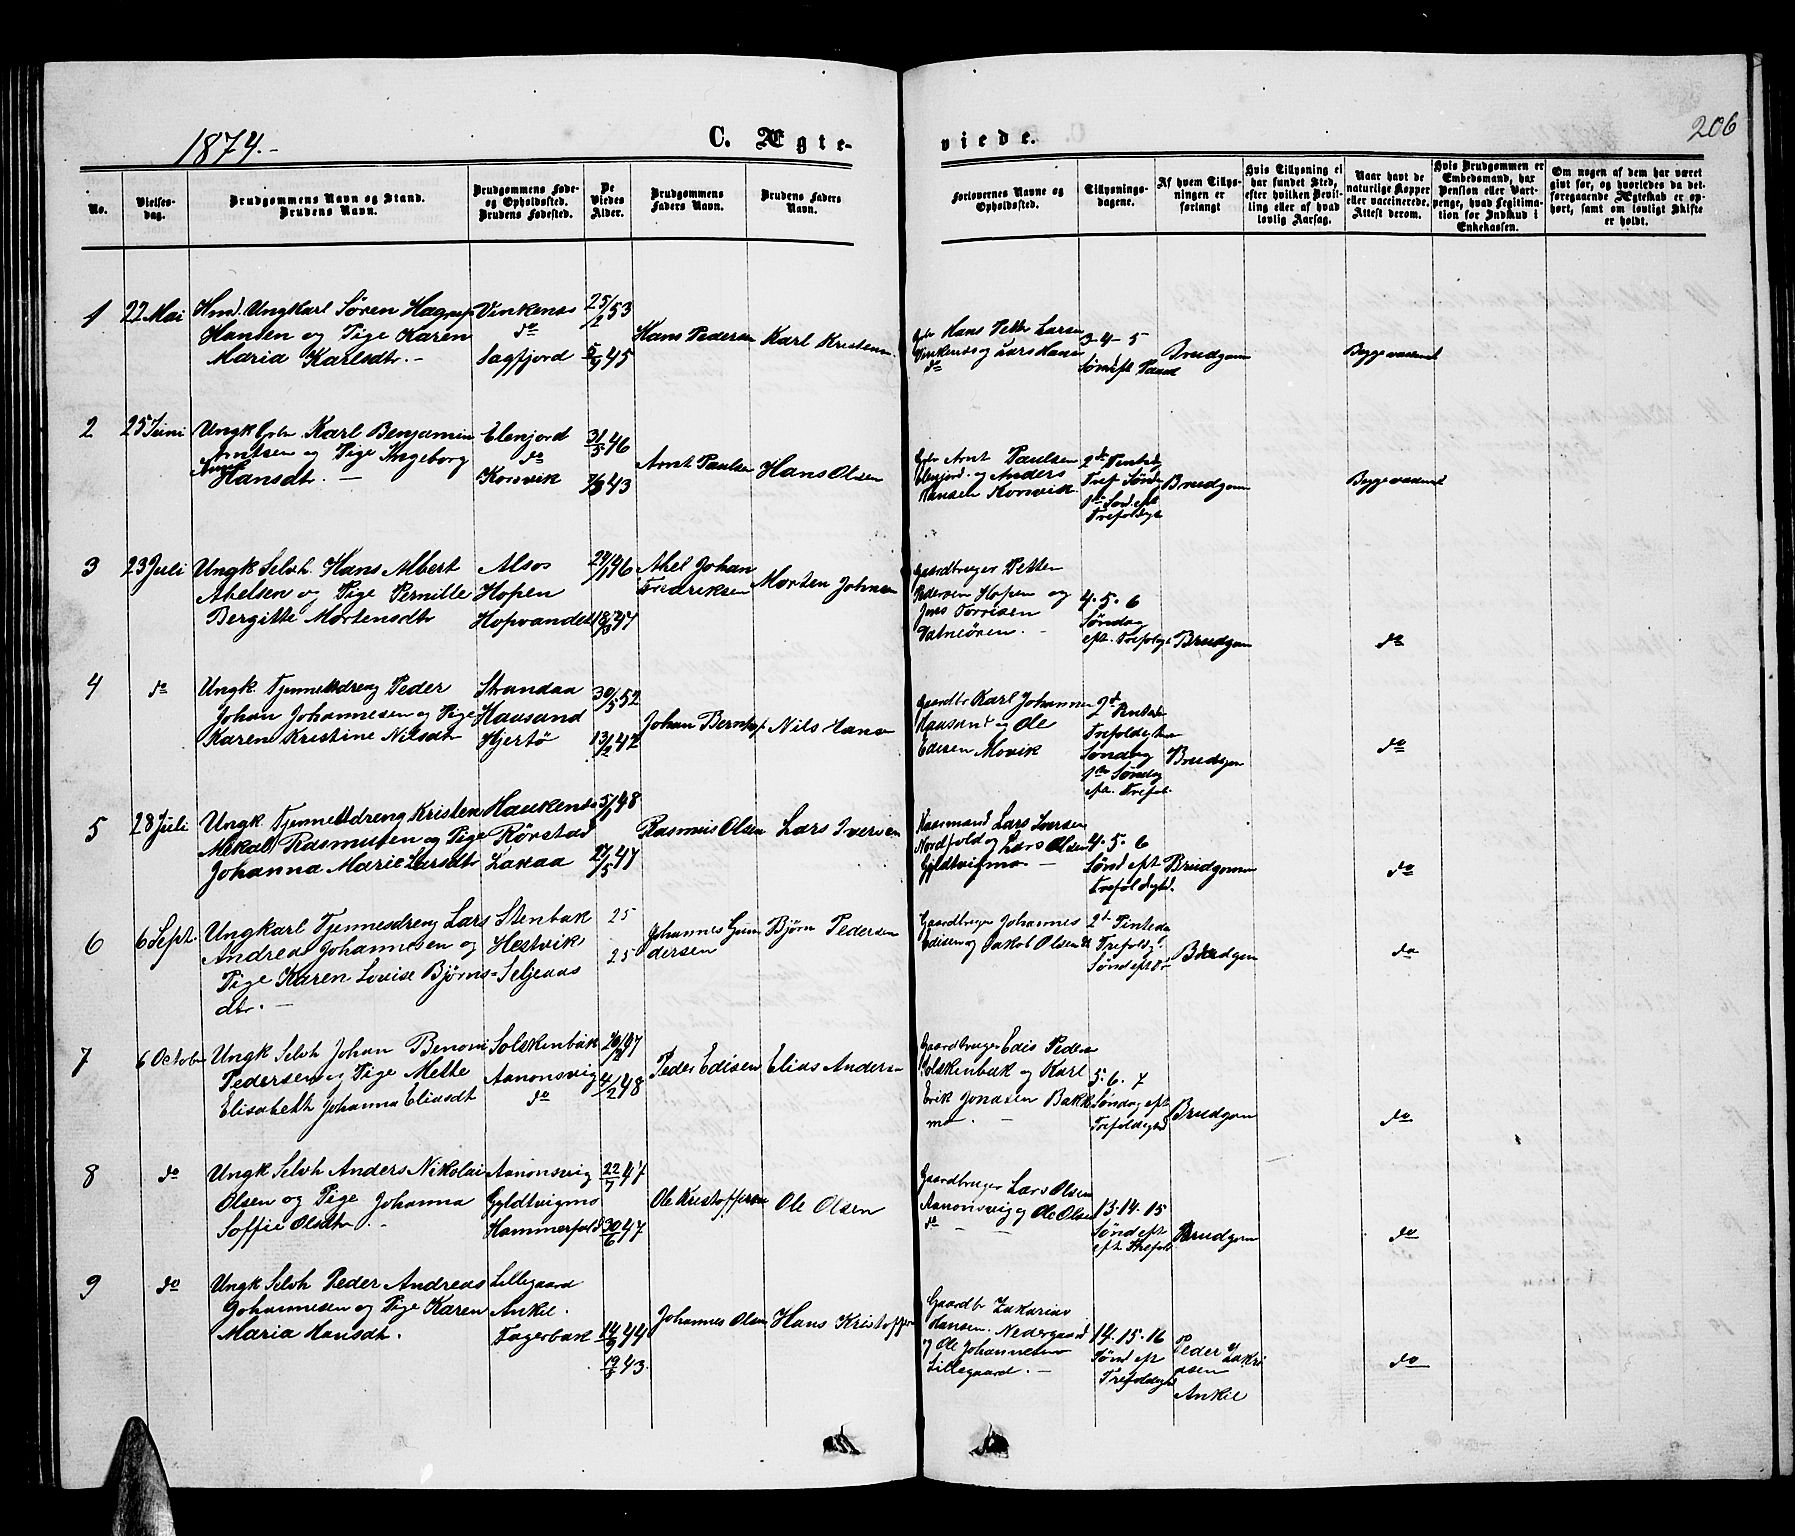 206
1874.-
C. Ægte-
viede.
No.
Vielses-
dag.
Brudgommens Navn og Stand.
Brudens Navn.
Brudgommens Føde-
og Opholdssted.
Brudens Fødested.
De
Viedes
Alder.
Brudgommens
Faders Navn.
Brudens Faders
Navn.
Forlovernes Navne og
Opholdssted.
Tillysnings-
dagene.
Af hvem Tillys-
ningen er
forlangt
Hvis Tillysning ei
har fundet Sted,
efter hvilken Bevil-
ling eller af hvad
lovlig Aarsag.
Naar havt de
naturlige Kopper
eller vaccinerede.
Attest derom.
Hvis Brudgommen er
Embedsmand, har
Pension eller Vart-
penge, hvad Legitima-
tion for Indskud i
Enkekassen.
Om nogen af dem har været
gift før, og hvorledes da det
foregaaende Ægteskab er op-
hørt, samt om lovligt Skifte
er holdt.
1
22 Mai
Hmd. Ungkarl Søren Hagrup
Hansen og Pige Karen
Maria Karlsdtr. -
Vinkenes
do
Sagfjord
25/2 53
5/9 45
Hans Pedersen
Karl Kristensen
Gbr Hans Petter Larsen
Vinkenes og Lars Hansen
do
3-4-5
Sønd eft Paask
Brudgom
Begge vaccinert
2
25 Juni
Ungk Gbr Karl Benjamin
Arntsen og Pige Ingeborg
Anna
Hansdtr. -
Elenjord
do
Korsvik
31/5 46
43
Arnt Paulsen
Hans Olsen
Gbr Arnt Paulsen
Elenjord. og Anders
Hansen Korsvik
2den Pintsedg
Tref Sønd
1ste Sød. eft
Trefoldigt
Brudgom
Begge vaccinert
3
23 Juli
Ungk Selvh. Hans Albert
Abelsen og Pige Pernille
Bergitte Mortensdtr
Alsos
Hopen
Hopvandet
24/1 46
47
Abel Johan
Fredriksen
Morten Johnsen
Gaardbruger Petter
Pedersen Hopen og
Jens Torrisen
Vatneøren. -
4. 5. 6
Søndag
eft. Trefoldigt
Brudgom
do
4
do
Ungk. Tjenestdreng Peder
Johan Johannesen og Pige
Karen Kristine Nilsdtr
Strandaa
Haasand
Hjertø
30/5 52
13/2 42
Johan Berntsf.
Nils Hans
Gaardbr Karl Johannes
Haasand og Ole
Edisen Movik
2d Pintsed
Trefoldigted
Søndag
1ste Søndag
eft. Trefol.
Brudgom
do
5
28 Juli
Ungk Tjenestdreng Kristen
Mikal Rasmusen og Pige
Johanna Marie Larsdtr
Haukenes
Rørstad
Laxaa
5/1 48
27/5 47
Rasmus Olsen
Lars Iversen
Kaarmand Lars Iversen
Nordfold og Lars Olsen
Gyldtvigmo -
4. 5. 6
Sønd eft
Trefoldigtd.
Brudgommen
do
6
6 Sept.
Ungkarl Tjennesdreng Lars
Andreas Johannesen og
Pige Karen Lovise Bjørns-
dtr. -
Stenbak
Hestvik
Seljeaas
25
25
Johannes Gun
dersen
Bjørn Pedersen
Gaardbruger Johannes
Edisen og Jakob Olsen
2d Pintedag
Trefoldigt
Sønd eft
Brudgom
do
7
6 October
Ungk Selvh Johan Benoni
Pedersen og Pige Mette
Elisabeth Johanna Eliasdt
Solskenbak
Aanonsvig
do
47
4/2 48
Peder Edisen
Elias Anders-
Gaardbruger Edis Peders
Solskenbak og Karl
Erik Jonasen Bakk
mo -
5. 6. 7
Søndag eft
Trefoldigtd
Brudgom
do
8
do
Ungk Selvh Anders Nikolai
Olsen og Pige Johanna
Soffie Olsdtr. -
Aanonsvig
Gyldtvigmo
Hammerfold
22/7 47
30/6 47
Ole Kristoffersen
Ole Olsen
Gaardbruger Lars Olsen
Aanonsvig og Ole Olsen
do - -
13. 14. 15
Sønd eft
eft Trefol.
Brudgom
do
9
do
Ungk Selvh Peder Andreas
Johannesen og Pige Karen
Maria Hansdtr.
Lillegaard
Ankel.
Fagerbak
14/9 44
43.
Johannes Olsen
Hans Kristoffer
Gaardbr Zakarias
Hansen. Nedergaard
og Ole Johannesen
Lillegaard. -
14. 15. 16
Sønd eft
Trefoldigtd
Peder Zakri
asen
Ankel
do